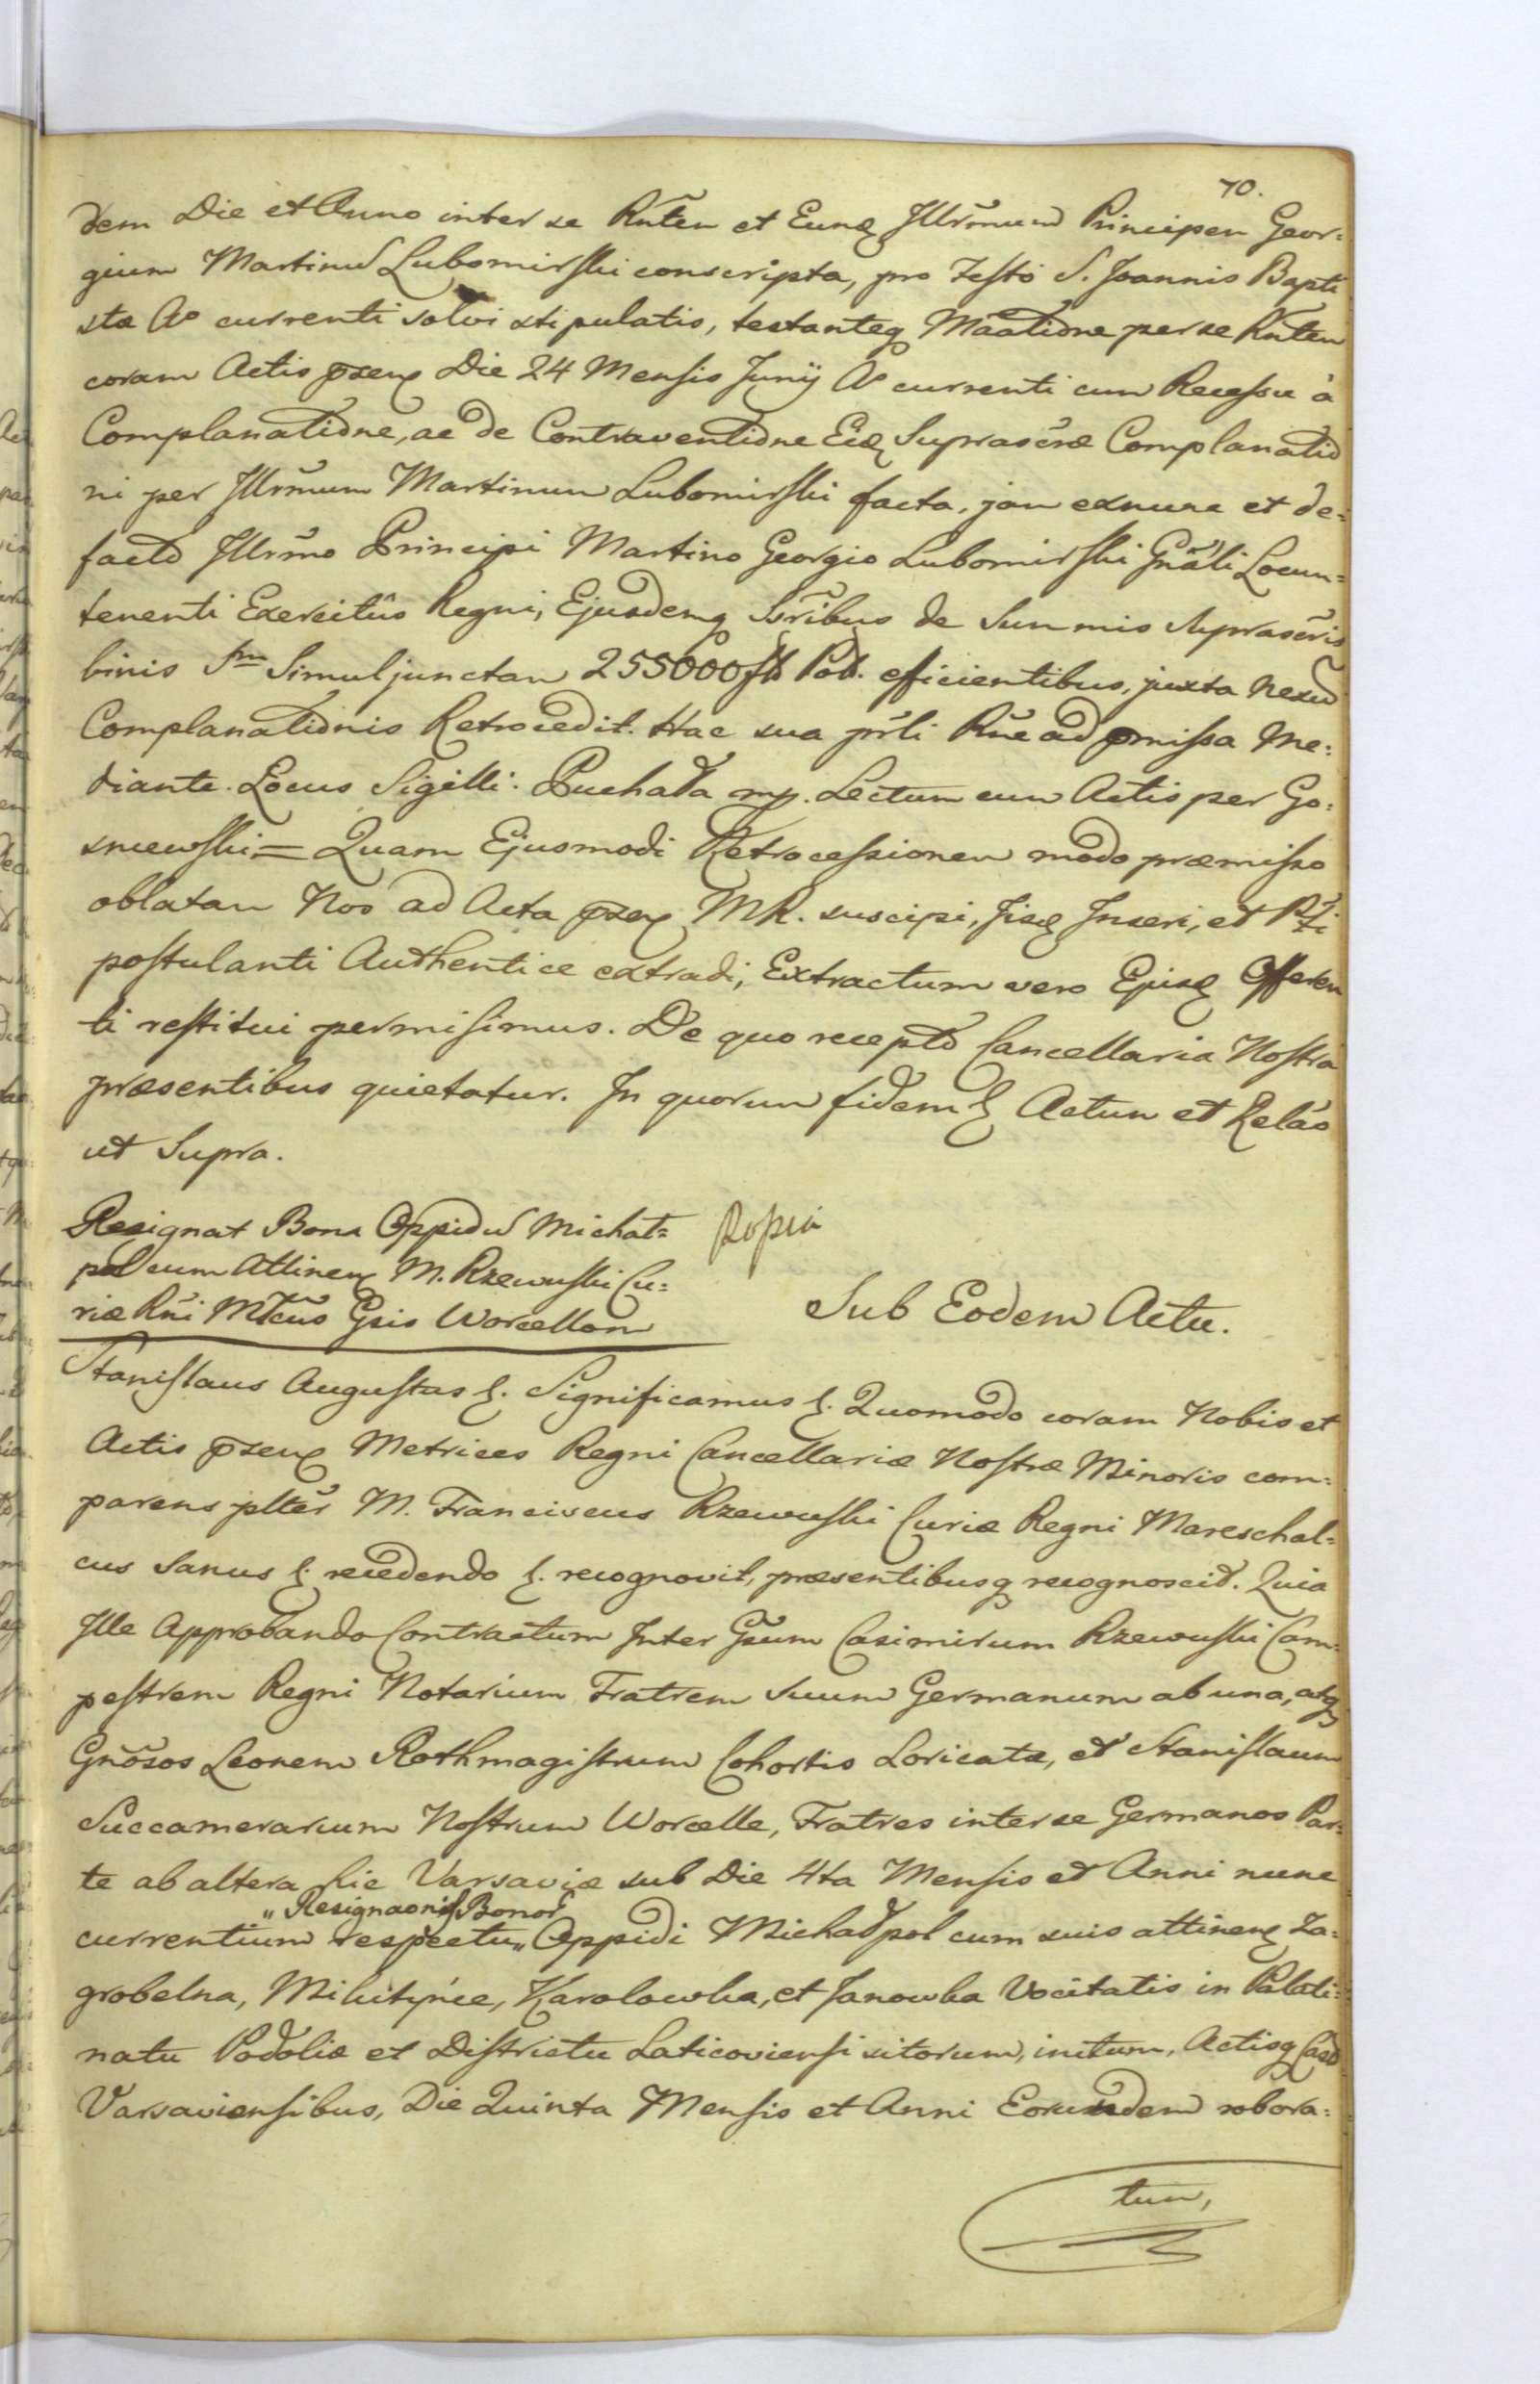 70.
dem Die et Anno inter se Rnten et Eunq Jllrmum Principem Geor=
gium Martinum Lubomirski conscripta, pro Festo S. Joannis Bapti
stæ Ao currenti solvi stipulatis, testanteq Maatione per se Rnten
coram Actis pzenq Die 24 Mensis Junij Ao currenti cum Recessu à
Complanatione, ac de Contraventione Eidq Suprascræ Complanatio
ni per Jllrmum Martinum Lubomirski facta, jam exnunc et de=
facto Jllrmo Principi Martino Georgio Lubomirski Gnali Locum=
tenenti Exercitûs Regni, Ejusdemq Ssribus de Summis suprascris
binis Sm Simul junctam 255000 fl Pol. efficientibus, juxta nexum
Complanationis Retrocedit. Hac sua prli Rne ad pmissa Me=
diante. Locus Sigilli. Puchała mp. Lectum cum Actis per Go=
sniewski = Quam Ejusmodi Retrocessionem modo præmisso
oblatam Nos ad Acta pzenq MR. suscipi, Jisq Inseri, et Pti
postulanti Authentice extradi, Extractum vero Ejusq Offeren
ti restitui permisimus. De quo recepto Cancellaria Nostra
præsentibus quietatur. In quorum fidem &. Actum et Relao
ut Supra.
Resignat Bona Oppidum Michał=
pol cum Attinenq M. Rzewuski Cu=
riæ Rni Mlcus Gsis Worcellom
Kopia
Sub Eodem Actu.
Stanislaus Augustus &. Significamus &. Quomodo coram Nobis et
Actis pzenq Metrices Regni Cancellariæ Nostræ Minoris com=
parens plter M. Franciscus Rzewuski Curiæ Regni Mareschal=
cus sanus &. recedendo &. recognovit, præsentibusq recognoscit. Quia
Ille Approbando Contractum Inter Gsum Casimirum Rzewuski Cam=
pestrem Regni Notarium Fratrem suum Germanum ab una, atq
Gnosos Leonem Rothmagistrum Cohortis Loricatæ, et Stanislaum
Succamerarium Nostrum Worcelle, Fratres inter se Germanos Par=
te ab altera hic Varsaviæ sub Die 4ta Mensis et Anni nunc
„Resignaonis Bonor
currentium respectu„ Oppidi Michałpol cum suis attinenq Za=
grobelna, Mikitynce, Karolowka, et Janowka Vocitatis in Palati=
natu Podoliæ et Districtu Laticoviensi sitorum, initum, Actisq Cast
Varsaviensibus, Die Quinta Mensis et Anni Eorundem robora=
tum,